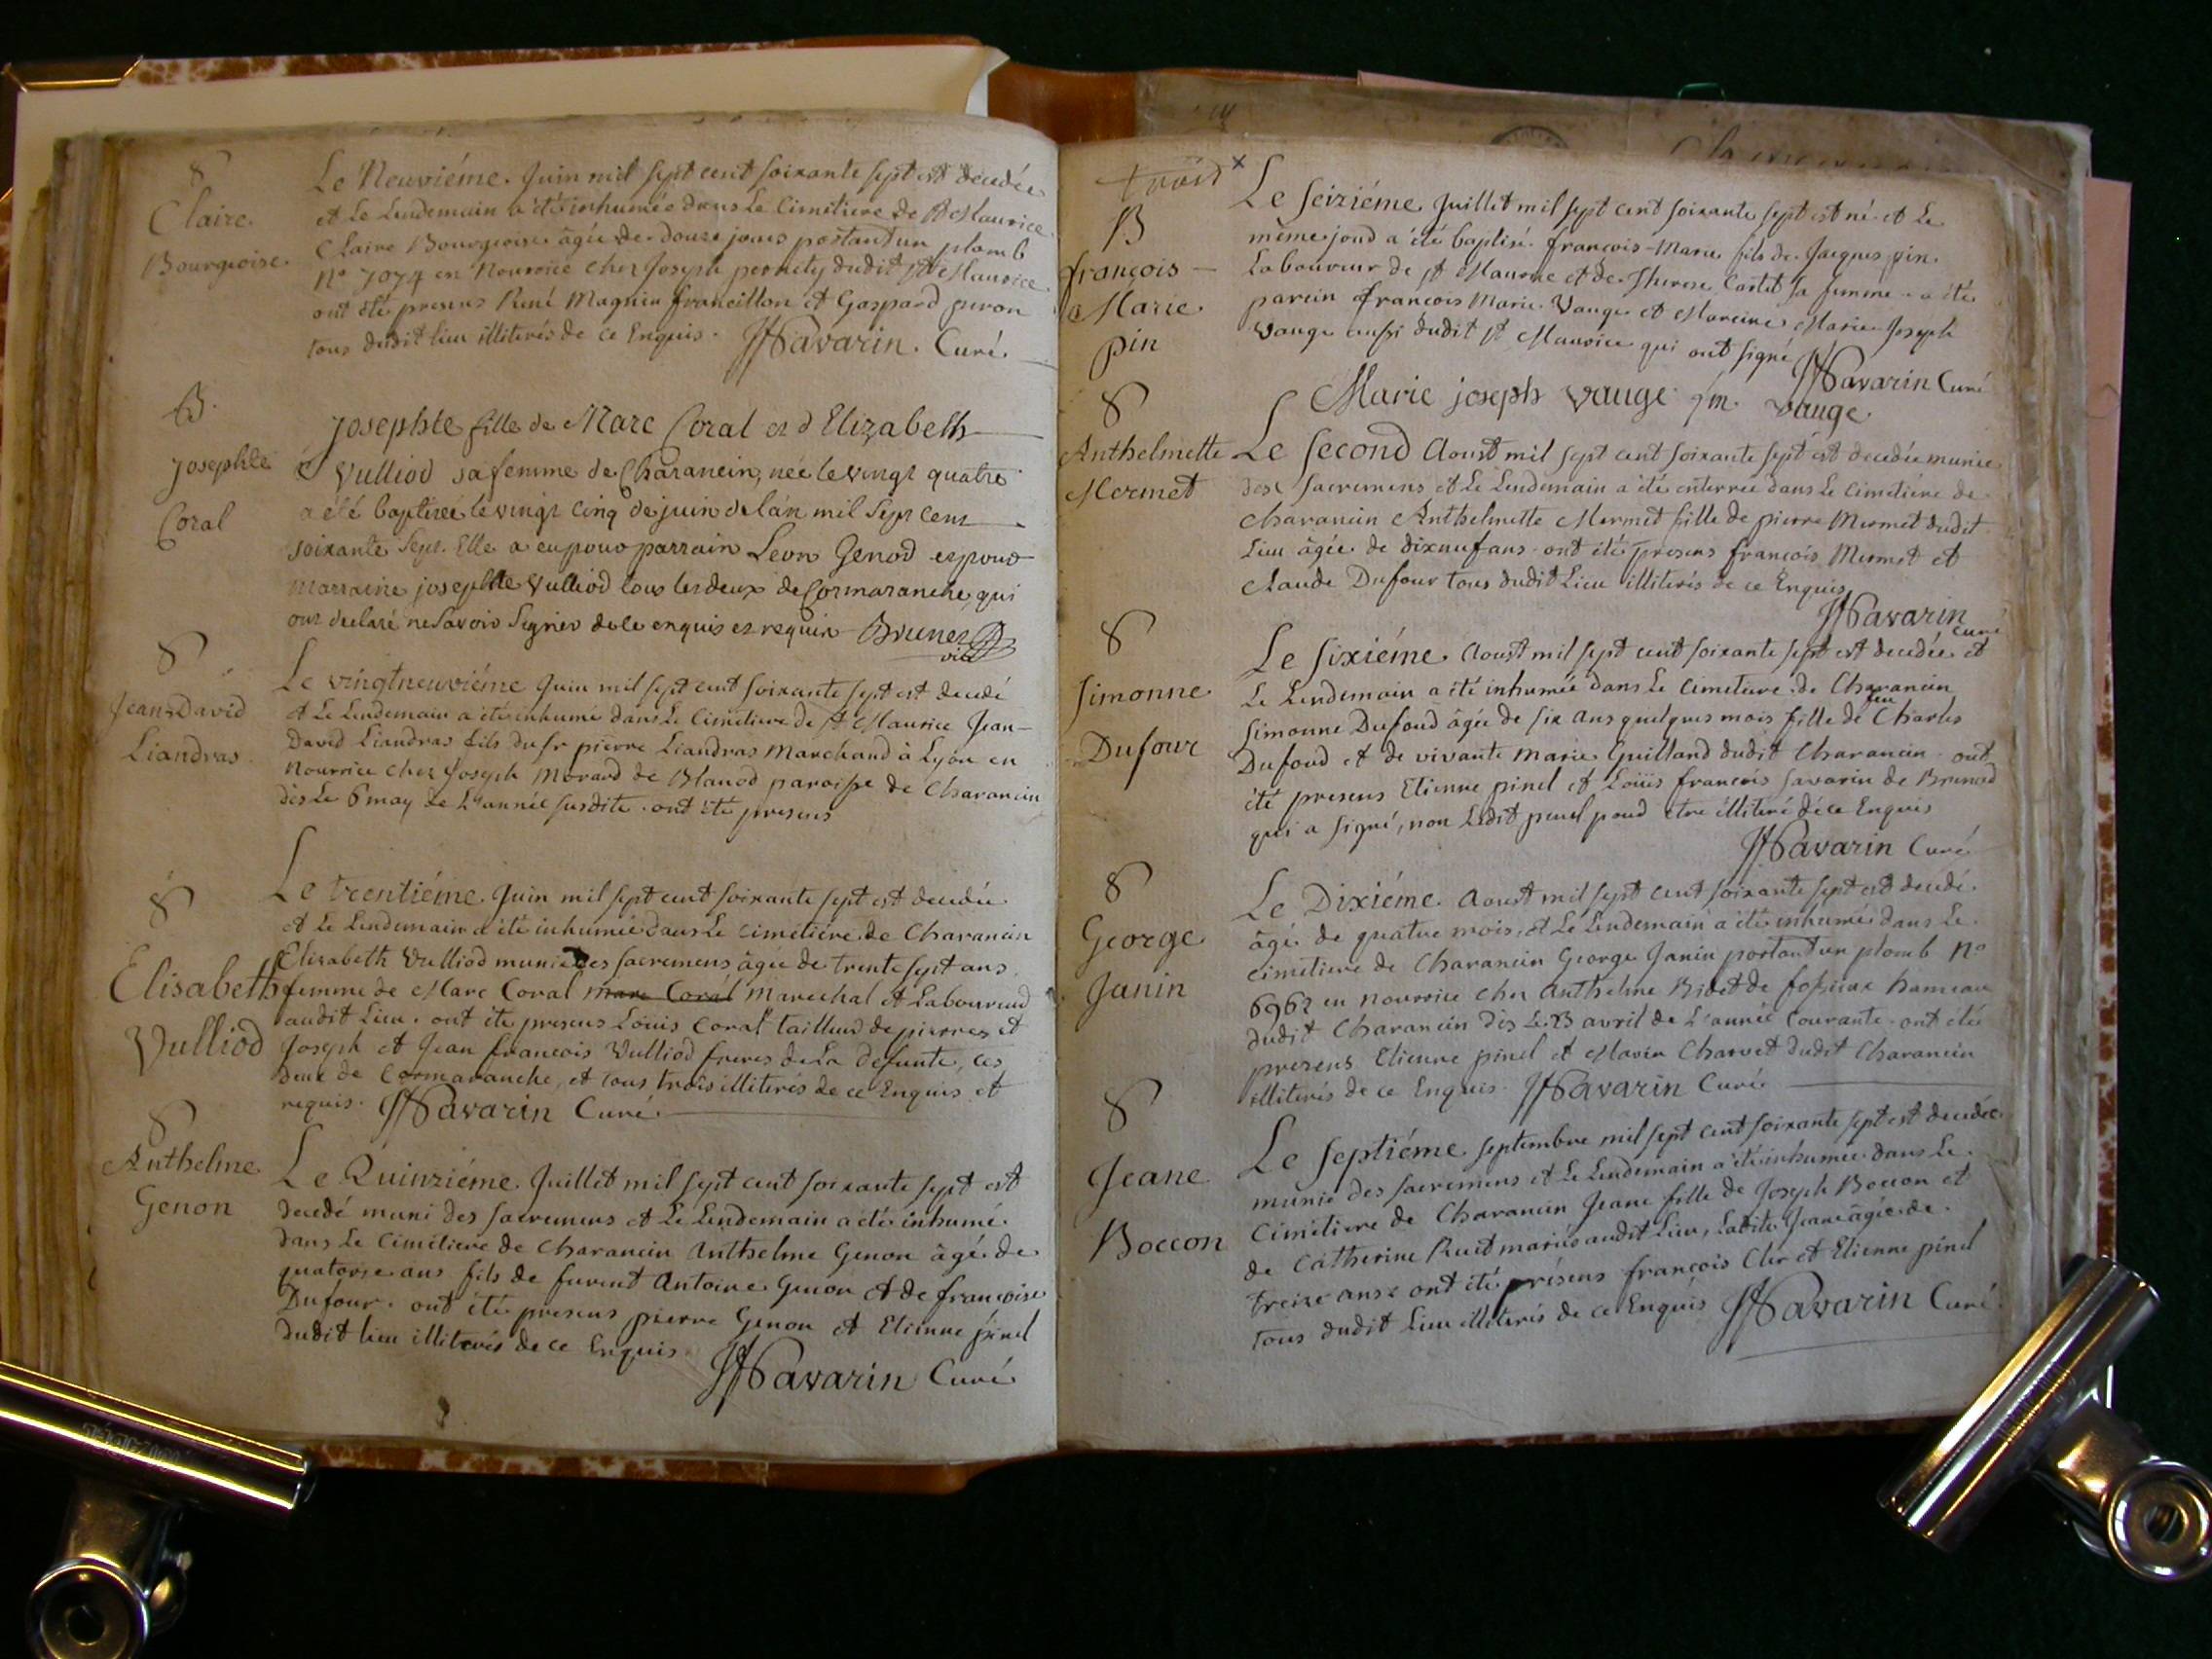 8
Claire
Bourgeoise
Le Neuviéme Juin mil sept cent soixante sept est decedée
et Le Lendemain a été inhumée dans Le Cimetiere de St Maurice
Claire Bourgeoise âgée de douze jours portant un plomb
N° 7074 en Nourrice chez Joseph pernety dudit St Maurice
ont été presens René Magnin francillon et Gaspard peron
tous dudit lieu illiterés de ce Enquis. Savarin Curé
B.
Josephte
Coral
Josephte fille de Marc Coral et d Elizabeth
Vulliod sa femme de Charancin, née le vingt quatre
a été baptisée le vingt cinq de juin de l'an mil sept cent
soixante sept. Elle a eu pour parrain Leon Genod et pour
marraine josephte Vulliod tous les deux de Cormaranche, qui
ont declaré ne savoir signer de ce enquis et requis Brunet
vic
8
Jean David
Liandras
Le vingtneuviéme Juin mil sept cent soixante sept est decedé
et Le Lendemain a été inhumé dans Le Cimetiere de St Maurice Jean-
David Liandras fils du sr pierre Liandras Marchand à Lyon en
Nourrice chez Joseph Morard de Blanod paroisse de Charancin
dès Le 6 may de L'année susdite. ont été presens
8
Elisabeth
Vulliod
Le trentiéme Juin mil sept cent soixante sept est decedée
et Le Lendemain a été inhumée dans Le cimetiére de Charancin
Elisabeth Vulliod munie des sacremens âgée de trente sept ans
femme de Marc Coral marc Coral Marechal et Laboureur
audit Lieu. ont été presens Loüis Coral tailleur de pierres et
Joseph et Jean francois Vulliod freres de La defunte, ces
deux de Cormaranche, et tous trois illiterés de ce Enquis et
requis. Savarin Curé
8
Anthelme
Genon
Le Quinziéme Juillet mil sept cent soixante sept est
decedé muni des sacremens et Le Lendemain a été inhumé
dans Le Cimetiere de Charancin Anthelme Genon âgé de
quatorze ans fils de furent Antoine Genon et de francoise
Dufour. ont été presens pierre Genon et Etienne pinel
dudit lieu illiterés de ce Enquis Savarin Curé
x
B
françois-
Marie
pin
Le seiziéme Juillet mil sept cent soixante sept est né et Le
même jour a été baptisé françois-Marie fils de Jacques pin
Laboureur de St Maurice et de Therese Castit sa femme. a été
parein François Marie Vauge et Mareine Marie Joseph
Vauge aussi dudit St Maurice qui ont signé Savarin Curé
Marie joseph vauge fm. vauge
8
Anthelmette
Mermet
Le second Aoust mil sept cent soixante sept est decedée munie
des sacremens et Le Lendemain a été enterrée dans Le Cimetiére de
Charancin Anthelmette Mermet fille de pierre Mermet dudit
Lieu âgée de dixneuf ans. ont été presens françois Mermet et
claude Dufour tous dudit Lieu illiterés de ce Enquis
Savarin
curé
8
Simonne
Dufour
Le sixiéme Aoust mil sept cent soixante sept est decedée et
Le Lendemain a été inhumée dans Le Cimetiere de Charancin
Simonne Dufour âgée de six ans quelques mois fille de feu Charles
Dufour et de vivante Marie Guilland dudit Charancin. ont
été presens Etienne pinel et Loüis françois savarin de Brenod
qui a signé, non Ledit pinel pour être illiteré de ce Enquis
Savarin Curé
8
George
Janin
Le Dixiéme Aoust mil sept cent soixante sept est decedé
âgé de quatre mois, et Le Lendemain a été inhumé dans Le
cimetiere de Charancin George Janin portant un plomb N°
6962 en nourrice chez Anthelme Bidet de fossieux hameau
dudit Charancin dès Le 23 avril de L'année courante. ont été
presens Etienne pinel et Marin Charvet dudit Charancin
illiterés de ce Enquis. Savarin Curé
8
Jeane
Boccon
Le septiéme septembre mil sept cent soixante sept est decedée
munie des sacremens et Le Lendemain a été inhumée dans Le
Cimetiere de Charancin Jeane fille de Joseph Boccon et
de Catherine Ruet mariés audit Lieu, Ladite Jeane âgée de
treize ans ont été présens françois Cler et Etienne pinel
tous dudit Lieu illiterés de ce Enquis Savarin Curé